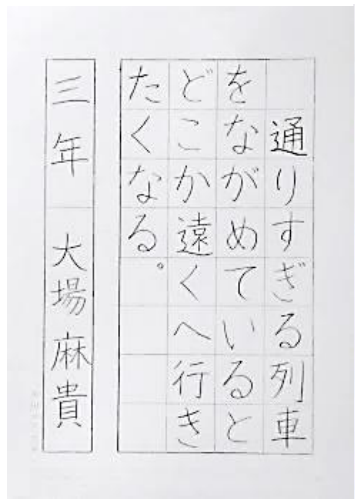 通りすぎる列車
をながめていると
どこか遠くへ行き
たくなる。
三年 大場麻貴